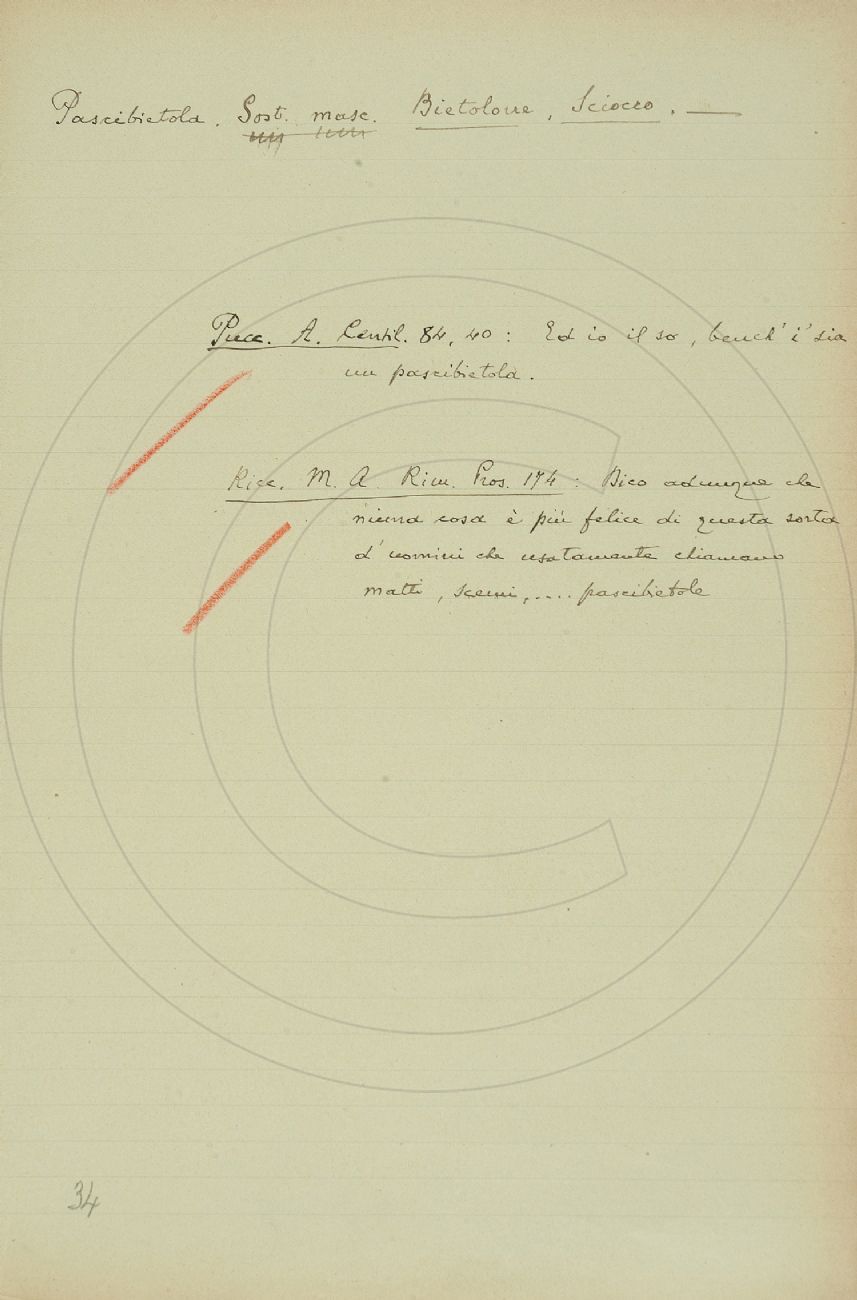 Pascibietola. Sost. masc. Bietolone, Sciocco. —
Pucc. A. Centil. 84, 40: Ed io il so, bench' i' sia
un pascibietola.
Ricc. M. A. Rim. Pros. 174: Dico adunque che
niuna cosa è più felice di questa sorta
d'uomini che usatamente chiamano
matti, scemi, .... pascibietole
34